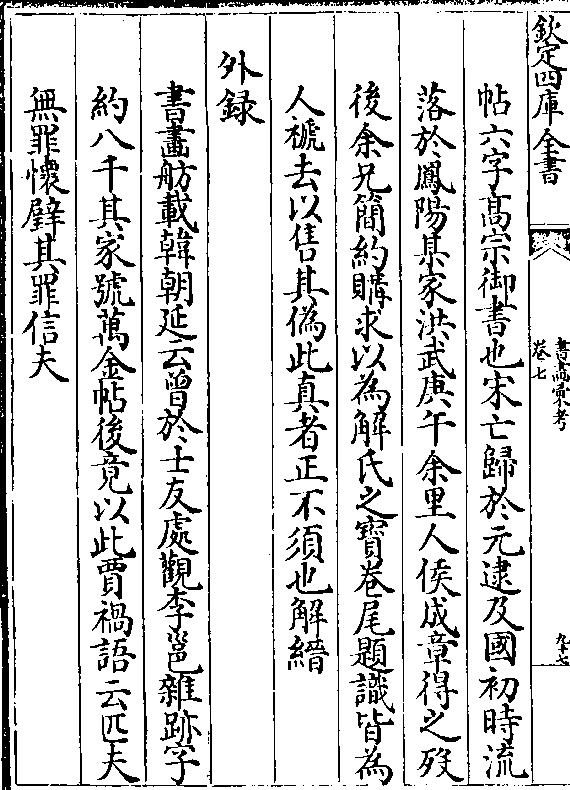 欽定四庫全書
書畫彙考
卷七
九十七
帖六字髙宗御書也宋亡歸於元逮及國初時流
落於鳳陽某家洪武庚午余里人侯成章得之殁
後余兄簡約購求以為解氏之寳卷尾題識皆為
人褫去以售其偽此真者正不須也解縉
外録
書畫舫載韓朝延云曽於士友處觀李邕雜跡字
約八千其家號萬金帖後竟以此賈禍語云匹夫
無罪懷璧其罪信夫